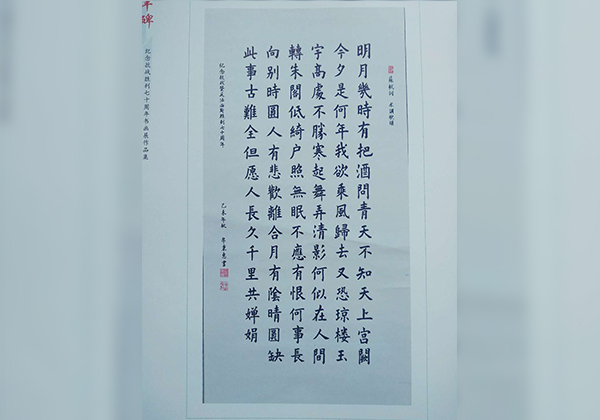 蘇軾詞 水調歌頭
明月幾時有把酒問青天不知天上宮闕
今夕是何年我欲乘風歸去又恐琼楼玉
宇高處不勝寒起舞弄清影何似在人間
轉朱閣低綺户照無眠不應有恨何事長
向别時圓人有悲歡離合月有陰晴圓缺
此事古難全但愿人長久千里共嬋娟
纪念抗戰暨反法西斯勝利七十周年
乙未年秋 書
碑
纪念抗战胜利七十周年书画展作品集